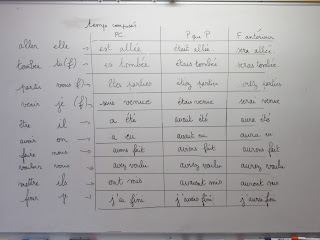 temps composés
PC P que P F antérieur
aller elle → est allée était allée sera allée
tomber tu (f) → es tombée étais tombée seras tombée
partir vous f) → êtes parties étiez parties serez parties
venir je (f) → suis venue étais venue serai venue
être il → a été avait été aura été
avoir on → a eu avait eu aura eu
faire nous → avons fait avions fait aurons fait
vouloir vous → avez voulu aviez voulu aurez voulu
mettre ils → ont mis avaient mis auront mis
finir j' → j'ai fini j'avais fini j'aurai fini